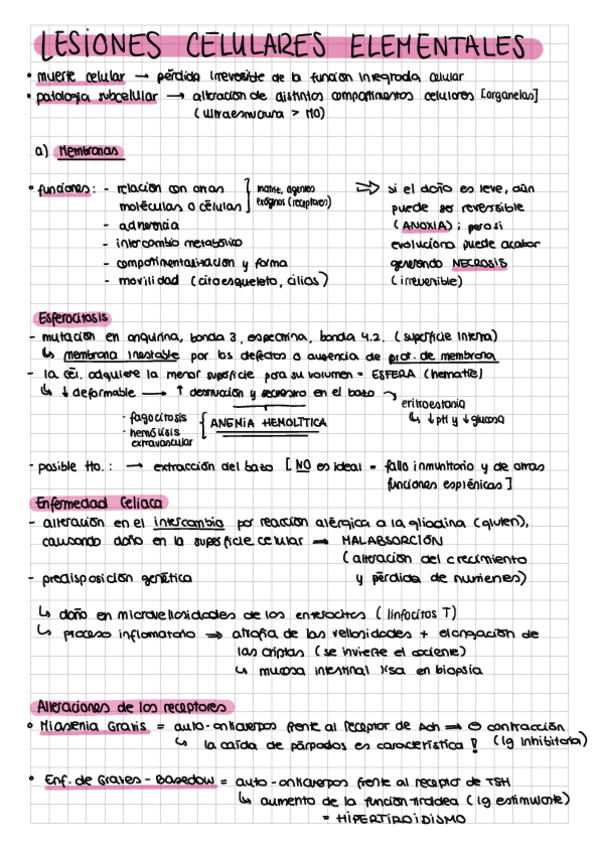 LESIONES CELULARES ELEMENTALES
• muerte celular → pérdida irreversible de la función integrada celular
• patología subcelular → alteración de distintos compartimentos celulares [organelas]
(ultraestructura > MO)
a) Membranas
• funciones: - relación con otras moléculas o células } matriz, agentes exógenos (receptores)
- adherencia
- intercambio metabólico
- compartimentalización y forma
- movilidad (citoesqueleto, cilios)
⇒ si el daño es leve, aún
puede ser reversible
(ANOXIA); pero si
evoluciona puede acabar
generando NECROSIS
(irreversible)
Esferocitosis
- mutación en anquirina, banda 3, espectrina, banda 4.2. (superficie interna)
↳ membrana inestable por los defectos o ausencia de prot. de membrana
- la cél. adquiere la menor superficie para su volumen = ESFERA (hematíe)
↳ ↓ deformable → ↑ destrucción y secuestro en el bazo ↘ eritroestasia
↳ ↓ pH y ↓ glucosa
- fagocitosis
- hemólisis extravascular
{ ANEMIA HEMOLÍTICA
- posible tto.: → extracción del bazo [NO es ideal = fallo inmunitario y de otras
funciones esplénicas]
Enfermedad Celiaca
- alteración en el intercambio por reacción alérgica a la gliadina (gluten),
causando daño en la superficie celular → MALABSORCIÓN
(alteración del crecimiento
y pérdida de nutrienes)
- predisposición genética
↳ daño en microvellosidades de los enterocitos (linfocitos T)
↳ proceso inflamatorio ⇒ atrofia de las vellosidades + elongación de
las criptas (se invierte el cociente)
↳ mucosa intestinal lisa en biopsia
Alteraciones de los receptores
• Miastenia Gravis = auto-anticuerpos frente al receptor de Ach ⇒ ⊖ contracción
↳ la caída de párpados es característica! (Ig inhibitoria)
• Enf. de Graves-Basedow = auto-anticuerpos frente al receptor de TSH
↳ aumento de la función tiroidea (Ig estimulante)
= HIPERTIROIDISMO